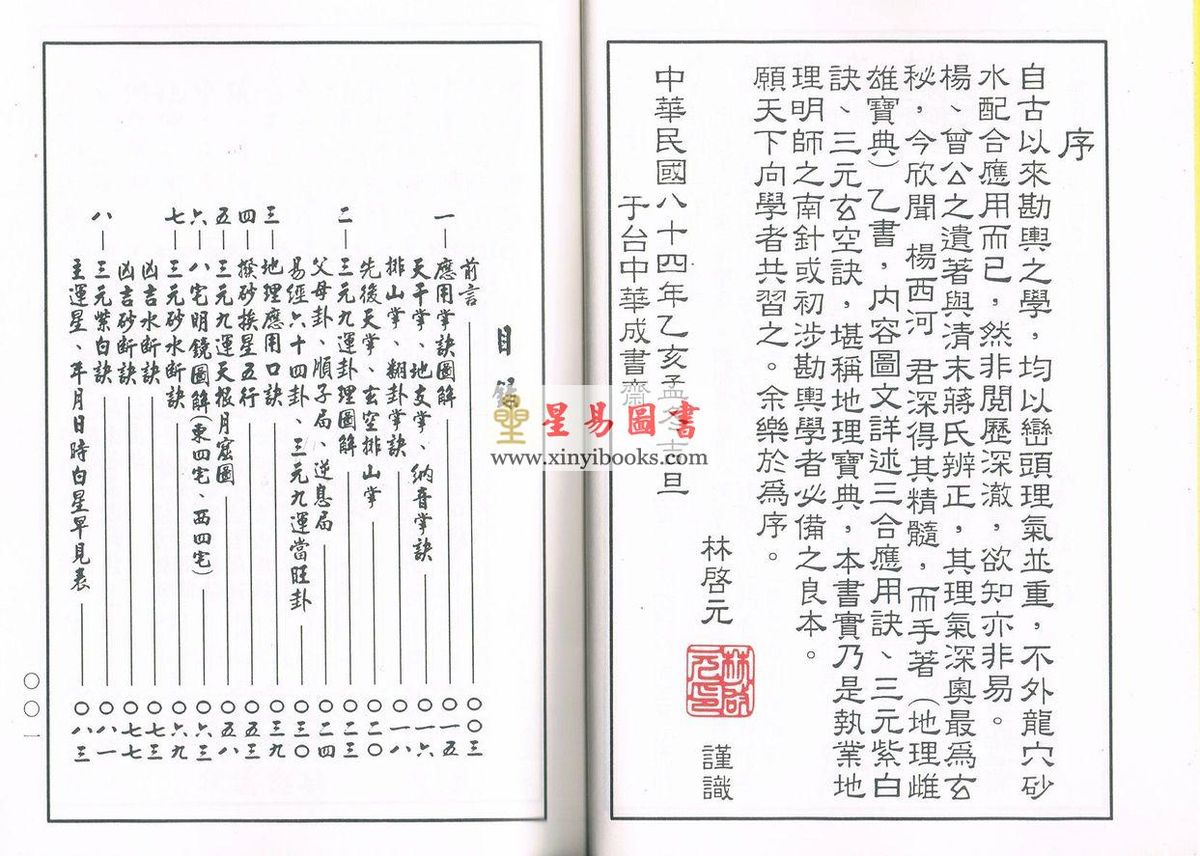 序
自古以來勘輿之學，均以巒頭理氣並重，不外龍穴砂
水配合應用而已，然非閱歷深澈，欲知亦非易。
楊、曾公之遺著與清末蔣氏辨正，其理氣深奧最為玄
秘，今欣聞 楊西河 君深得其精髓，而手著（地理雌
雄寶典）乙書，內容圖文詳述三合應用訣、三元紫白
訣、三元玄空訣，堪稱地理寶典，本書實乃是執業地
理明師之南針或初涉勘輿學者必備之良本。
願天下向學者共習之。余樂於為序。
林啓元 謹識
林啟元印
中華民國八十四年乙亥孟冬吉旦
于台中華成書齋
星易圖書
www.xinyibooks.com
目錄
前言 〇〇三
一 應用掌訣圖解 〇一五
天干掌、地支掌、納音掌訣 〇一六
排山掌、翻卦掌訣 〇一八
先後天掌、玄空排山掌 〇二〇
二 三元九運卦理圖解 〇二三
父母卦、順子局、逆息局 〇二四
易經六十四卦、三元九運當旺卦 〇三〇
三 地理應用口訣 〇三九
四 撥砂換星五行 〇五三
五 三元九運天根月窟圖 〇五八
六 八宅明鏡圖解（東四宅、西四宅） 〇六三
七 三元砂水斷訣 〇六九
凶吉水斷訣 〇七三
凶吉砂斷訣 〇七七
八 三元紫白訣 〇八一
主運星、年月日時白星早見表 〇八三
〇〇一